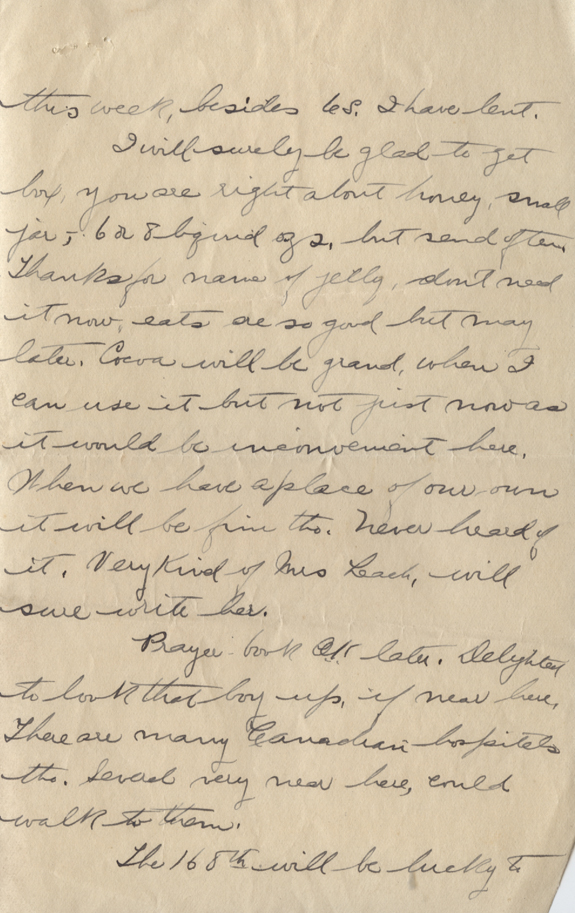 this week, besides 6s. I have lent.
I will surely be glad to get
box, you are right about honey, small
jar, 6 or 8 liquid ozs, but send often.
Thanks for name of jelly, don't need
it now, eats are so good but may
later. Cocoa will be grand, when I
can use it but not just now as
it would be inconvenient here.
When we have a place of our own
it will be fine tho. Never heard of
it. Very kind of Mrs Leach, will
sure write her.
Prayer book OK later. Delighted
to look that boy up, if near here.
There are many Canadian hospitals
tho. Several very near here, could
walk to them.
The 168th will be lucky to